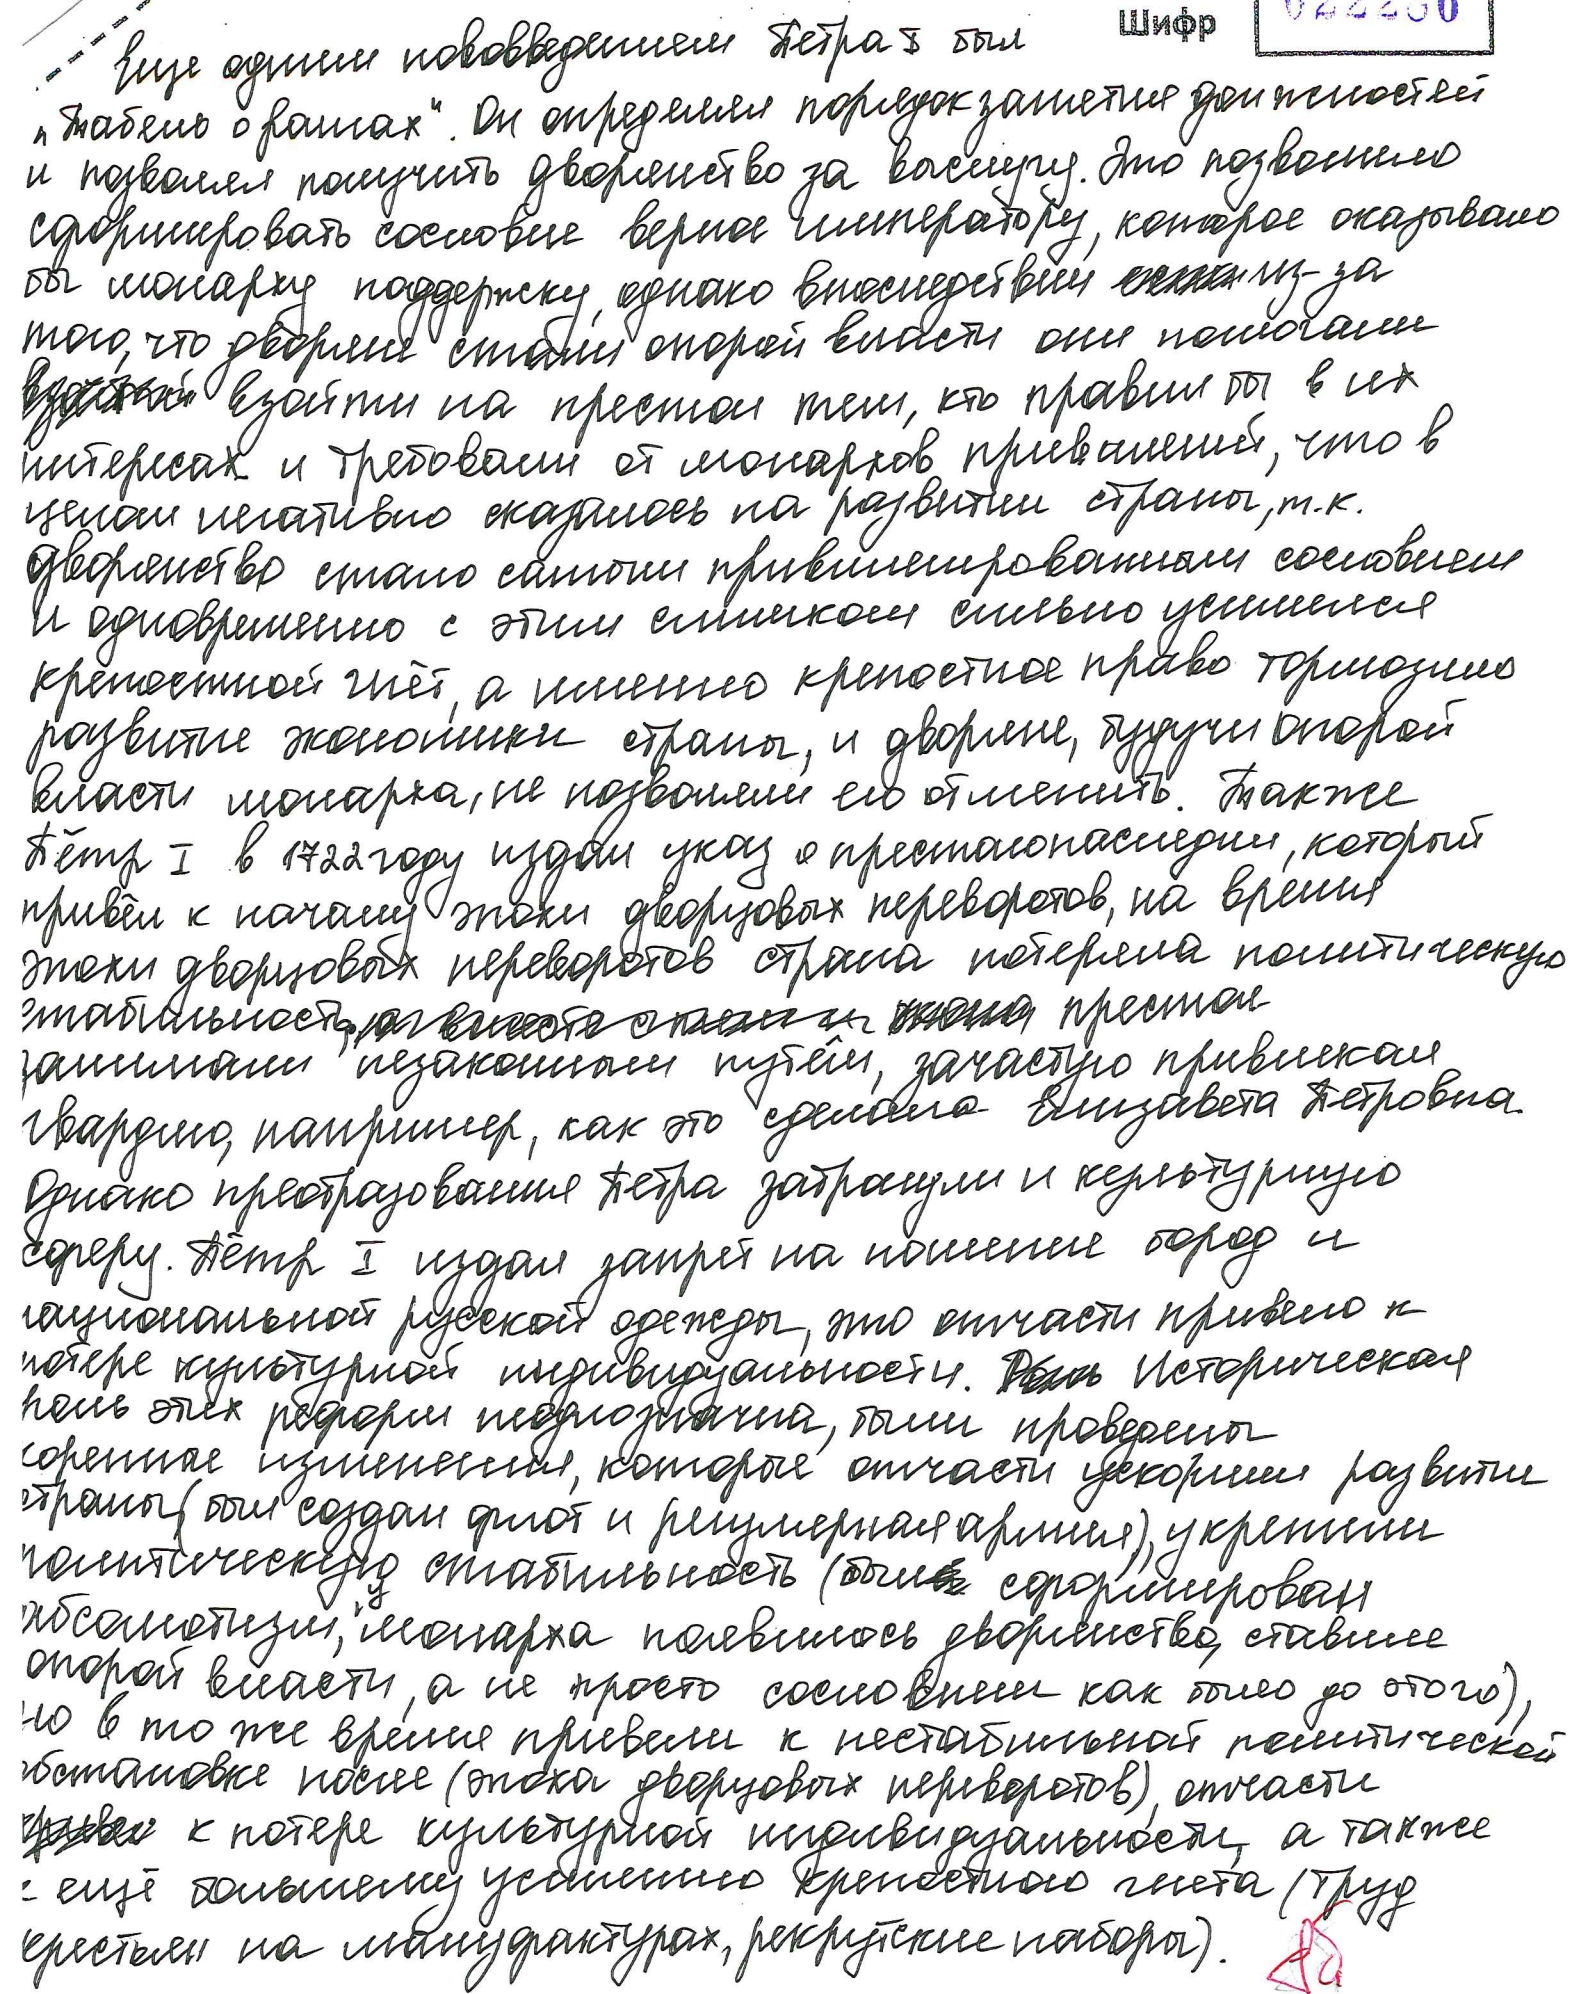 Шифр
Еще одним нововведением Петра I был
„Табель о рангах“. Он определял порядок занятия должностей
и позволял получить дворянство за выслугу. Это позволило
сформировать сословие верное императору, которое оказывало
бы монарху поддержку, однако впоследствии из-за
того, что дворяне стали опорой власти они помогали
взойти на престол тем, кто правил бы в их
интересах и требовали от монархов привилегий, что в
целом негативно сказалось на развитии страны, т.к.
дворянство стало самым привилегированным сословием
и одновременно с этим слишком сильно усилился
крепостной гнёт, а именно крепостное право тормозило
развитие экономики страны, и дворяне, будучи опорой
власти монарха, не позволяли его отменить. Также
Пётр I в 1722 году издал указ о престолонаследии, который
привёл к началу эпохи дворцовых переворотов, на время
эпохи дворцовых переворотов страна потеряла политическую
стабильность, престол
занимали незаконным путём, зачастую привлекая
гвардию, например, как это сделала Елизавета Петровна.
Однако преобразования Петра затронули и культурную
сферу. Пётр I издал запрет на ношение бород и
национальной русской одежды, это отчасти привело к
потере культурной индивидуальности. Историческая
роль этих реформ неоднозначна, были проведены
коренные изменения, которые отчасти ускорили развитие
страны (был создан флот и регулярная армия), укрепили
политическую стабильность (был сформирован
абсолютизм, у монарха появилось дворянство, ставшее
опорой власти, а не просто сословием как было до этого),
но в то же время привели к нестабильной политической
обстановке после (эпоха дворцовых переворотов), отчасти
к потере культурной индивидуальности, а также
к ещё большему усилению крепостного гнёта (труд
крестьян на мануфактурах, рекрутские наборы).